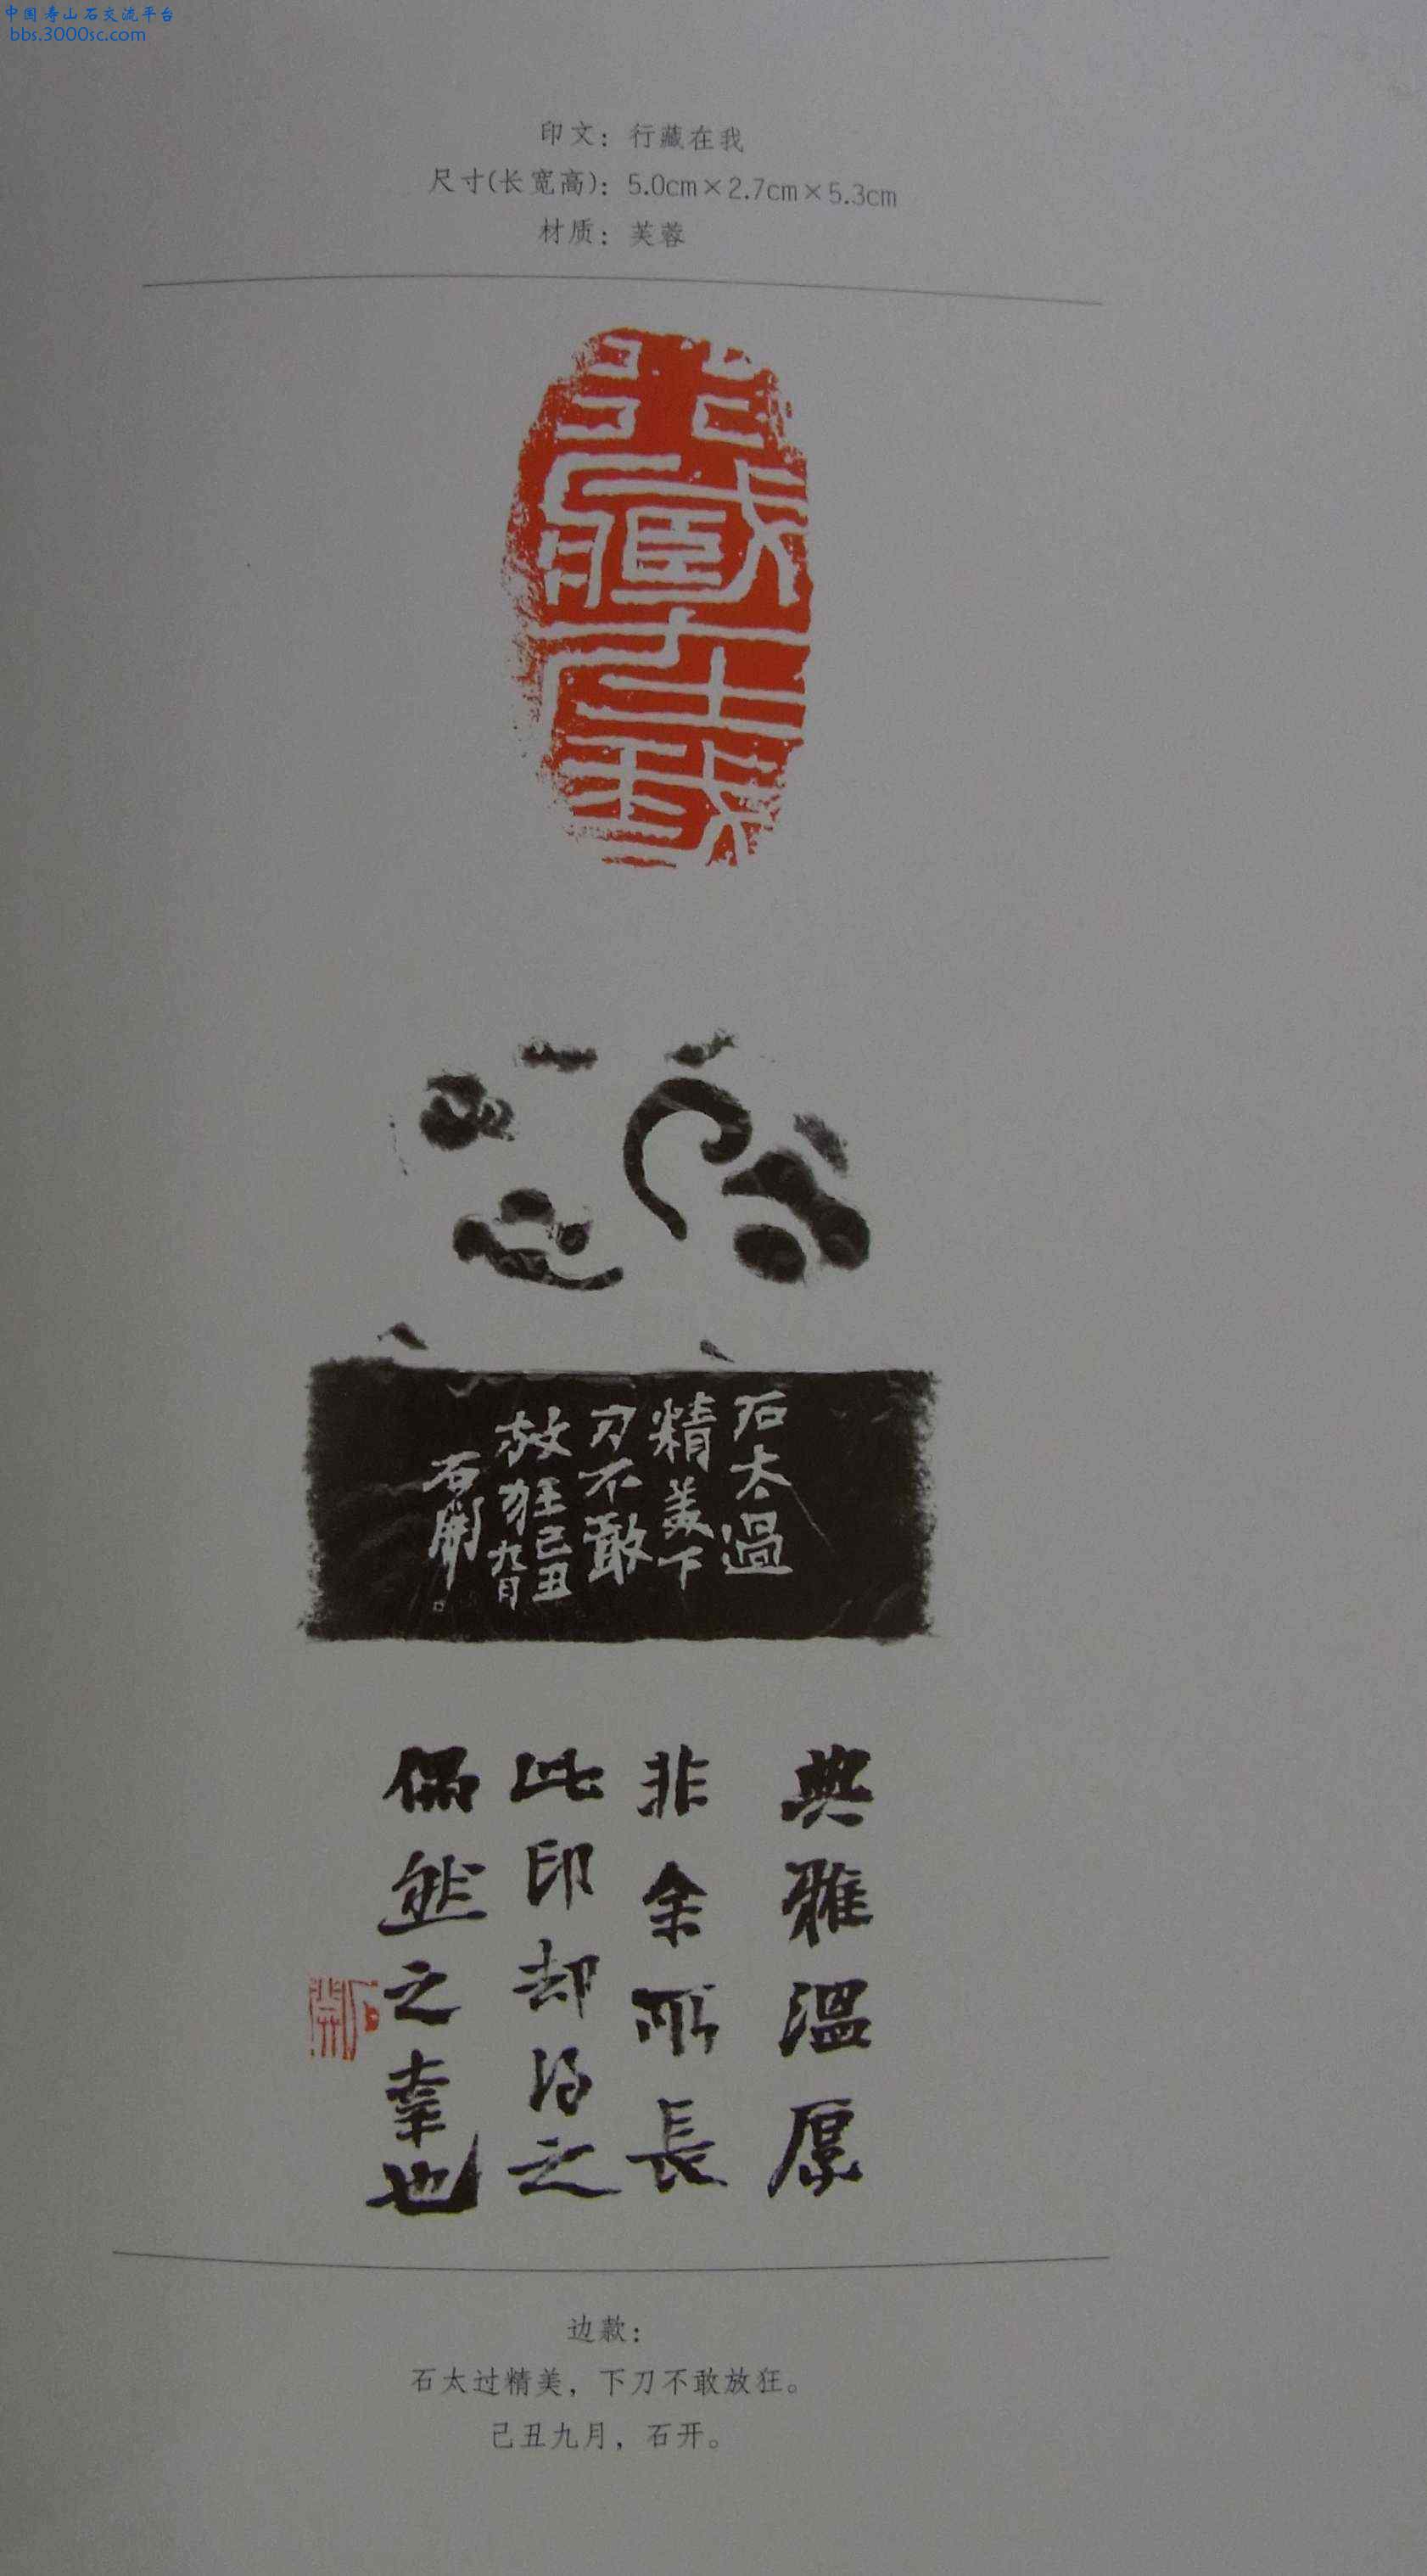 中国寿山石交流平台
bbs.3000sc.com
印文：行藏在我
尺寸(长宽高)：5.0cm×2.7cm×5.3cm
材质：芙蓉
行藏在我
石太過
精美下
刀不敢
放狂己丑
九月
石開
典雅溫厚
非余所長
此印却得之
偶然之幸也
石開
边款：
石太过精美，下刀不敢放狂。
己丑九月，石开。